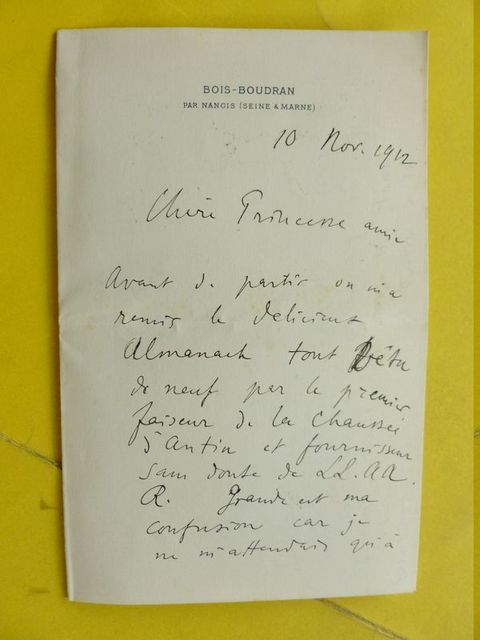 BOIS-BOUDRAN
PAR NANGIS (SEINE & MARNE)
10 Nov. 1912
Chère Princesse amie
Avant de partir on m'a
remis le délicieux
Almanach tout vêtu
de neuf par le premier
faiseur de la Chaussée
d'Antin et fournisseur
sans doute de LL. AA.
R. Grande est ma
confusion car je
ne m'attendais qu'à